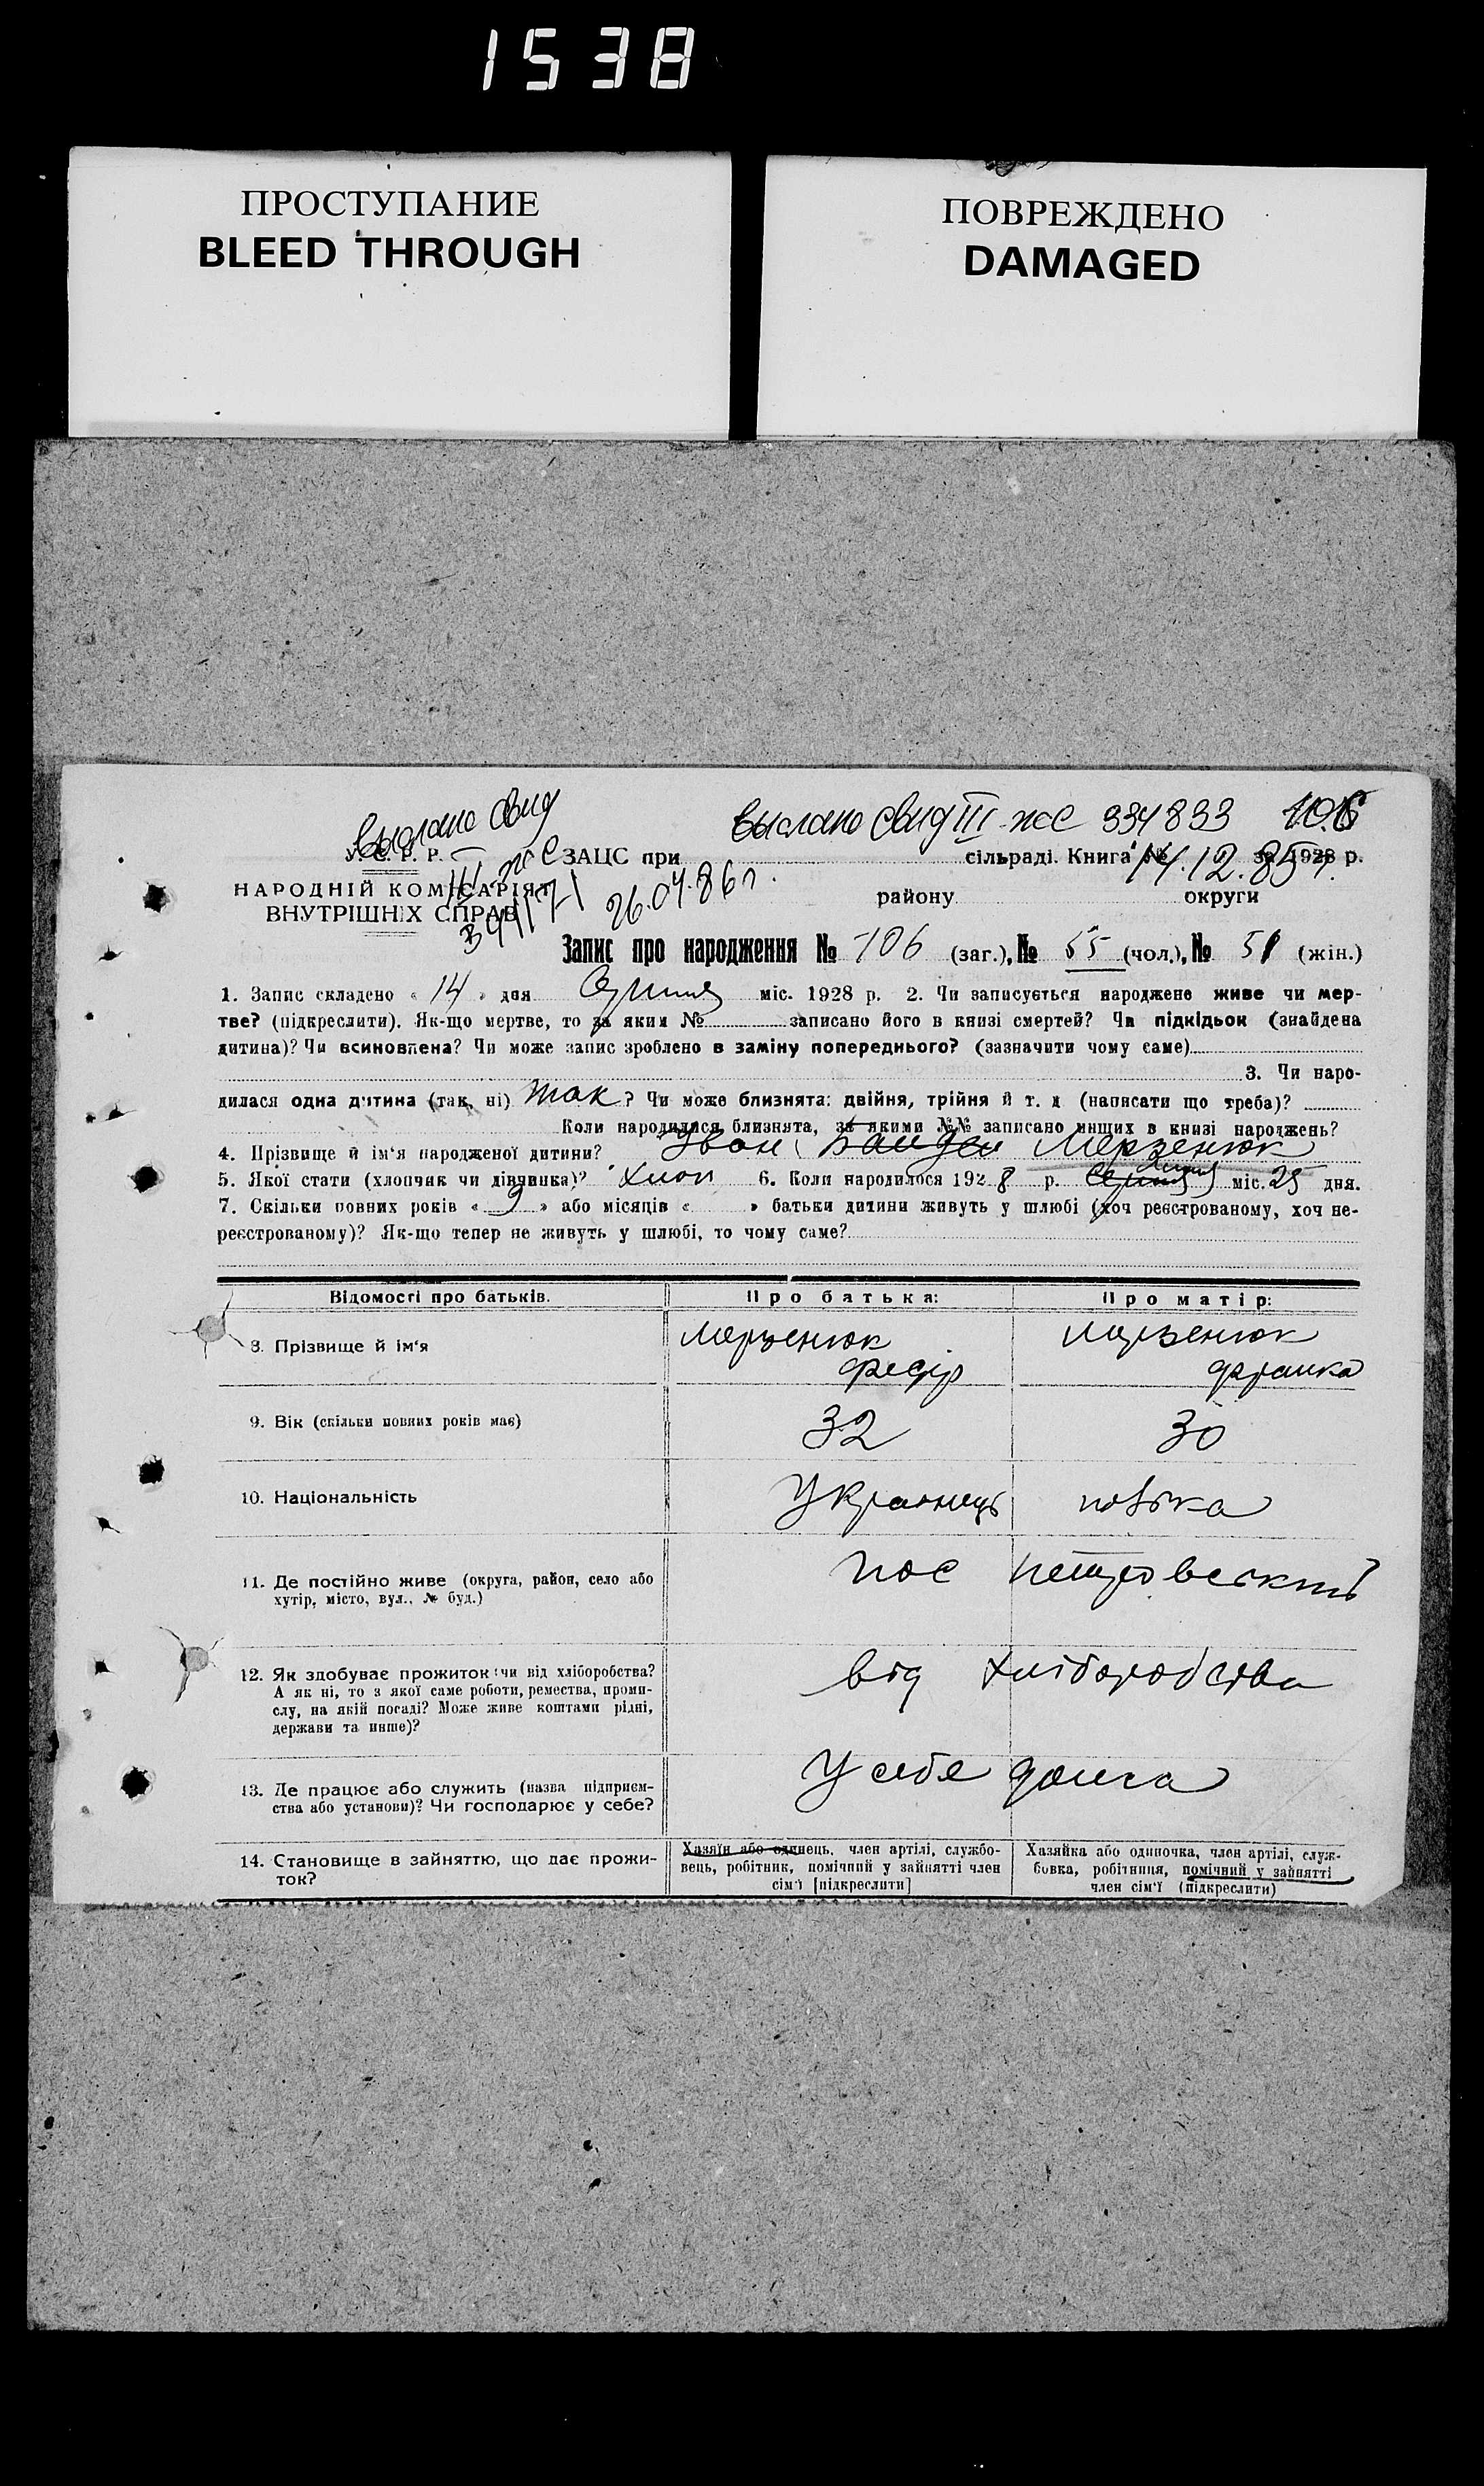 1538
ПРОСТУПАНИЕ
BLEED THROUGH
ПОВРЕЖДЕНО
DAMAGED
Выслано Свид Выслано Свид III-жс 334833
У. С. Р. Р. III-жС ЗАЦС при сільраді. Книга № 14.12.85г. за 1928 р.
НАРОДНІЙ КОМІСАРІЯТ 26.04.86г. району округи
ВНУТРІШНІХ СПРАВ
Запис про народження № 106 (заг.), № 55 (чол.), № 51 (жін.)
1. Запис складено « 14 » дня Серпня міс. 1928 р. 2. Чи записується народжене живе чи мер-
тве? (підкреслити). Як-що мертве, то за яким № записано його в книзі смертей? Чи підкідьок (знайдена
дитина)? Чи всиновлена? Чи може запис зроблено в заміну попереднього? (зазначити чому саме)
3. Чи наро-
дилася одна дитина (так, ні) так? Чи може близнята: двійня, трійня й т. д (написати що треба)?
Коли народилися близнята, за якими №№ записано инщих в книзі народжень?
4. Прізвище й ім'я народженої дитини? Іван Мерзенюк
5. Якої стати (хлопчик чи дівчинка)? Хлоп 6. Коли народилося 1928 р. Серпня міс. 25 дня.
7. Скільки повних років « 9 » або місяців « » батьки дитини живуть у шлюбі (хоч реєстрованому, хоч не-
реєстрованому)? Як-що тепер не живуть у шлюбі, то чому саме?
Відомості про батьків. Про батька: Про матір:
8. Прізвище й ім'я Мерзенюк Мерзенюк
Федір Франка
9. Вік (скільки повних років має) 32 30
10. Національність Українець полька
11. Де постійно живе (округа, район, село або
хутір, місто, вул., № буд.) пос
12. Як здобуває прожиток: чи від хліборобства? від хліборобства
А як ні, то з якої саме роботи, ремества, проми-
слу, на якій посаді? Може живе коштами рідні,
держави та инше)?
13. Де працює або служить (назва підприєм- У себе дома
ства або установи)? Чи господарює у себе?
14. Становище в зайняттю, що дає прожи-
ток?
Хазяїн або одинець, член артілі, службо-
вець, робітник, помічний у зайнятті член
сім'ї [підкреслити]
Хазяйка або одиночка, член артілі, служ-
бовка, робітниця, помічний у зайнятті
член сім'ї (підкреслити)